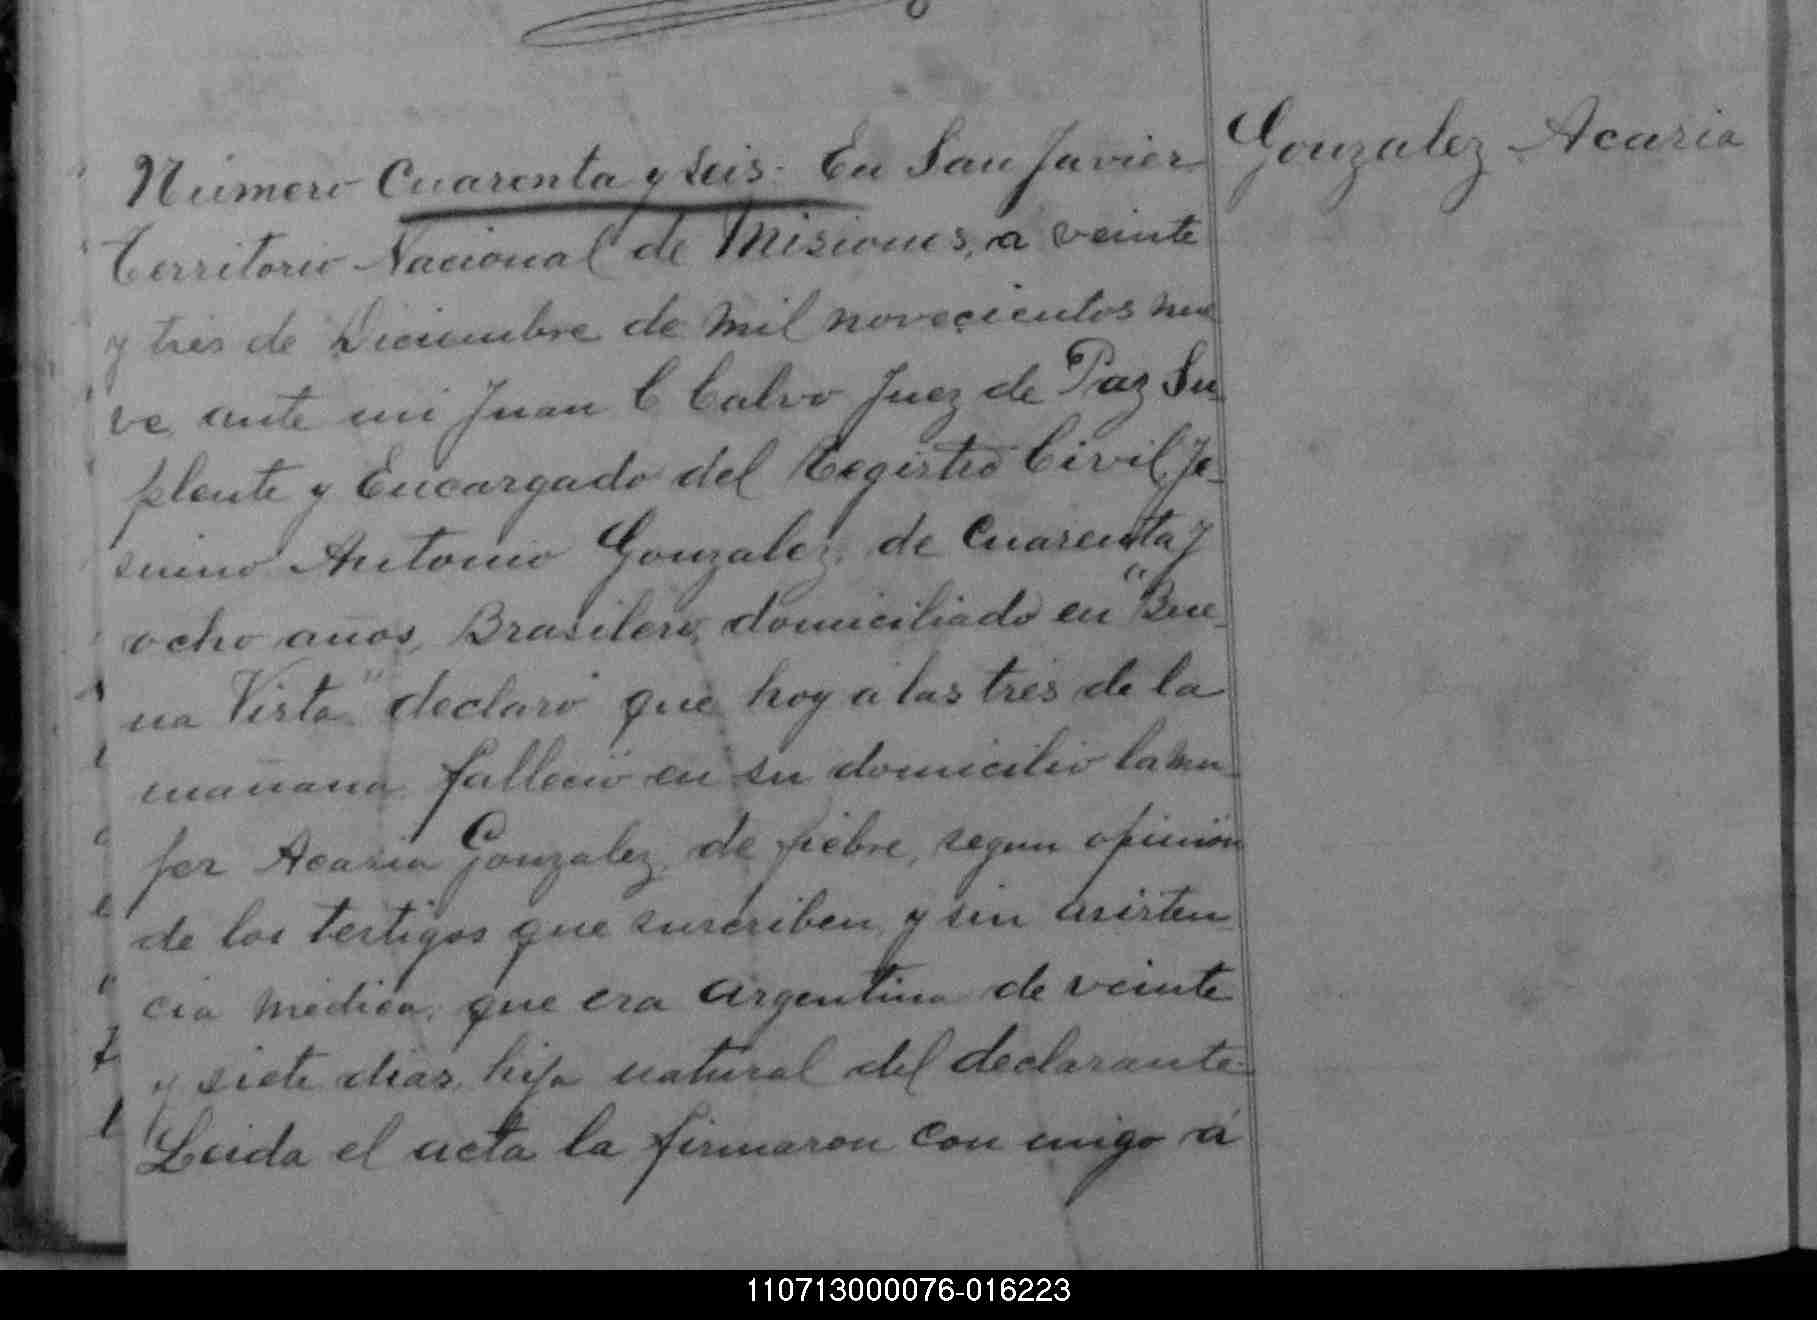 Gonzalez Acacia
Número Cuarenta y seis. En San Javier
Territorio Nacional de Misiones, a veinte
y tres de Diciembre de mil novecientos nue
ve ante mi Juan C Calvo Juez de Paz Su
plente y Encargado del Registro Civil, Je-
suino Antonio Gonzalez, de Cuarenta y
ocho años, Brasilero, domiciliado en "Bue-
na Vista" declaró que hoy a las tres de la
mañana falleció en su domicilio la mu-
jer Acacia Gonzalez, de fiebre, segun opinión
de los testigos que suscriben, y sin asisten
cia médica, que era Argentina de veinte
y siete dias, hija natural del declarante.
Leida el acta la firmaron con migo á
110713000076-016223